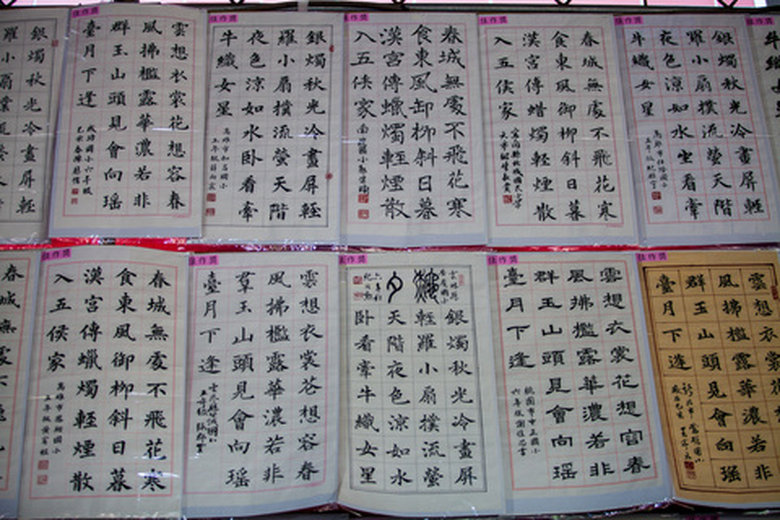 銀燭秋光冷畫屏輕
羅小扇撲流螢天階
佳作獎
雲想衣裳花想容春
風拂檻露華濃若非
群玉山頭見會向瑤
臺月下逢
佳作獎
銀燭秋光冷畫屏輕
羅小扇撲流螢天階
夜色涼如水臥看牽
牛織女星
佳作獎
春城無處不飛花寒
食東風卸柳斜日暮
漢宮傳蠟燭輕煙散
入五侯家
佳作獎
春城無處不飛花寒
食東風御柳斜日暮
漢宮傳蜡燭輕煙散
入五侯家
佳作獎
銀燭秋光冷畫屏輕
羅小扇撲流螢天階
夜色涼如水坐看牽
牛織女星
春城無
佳作獎
春城無處不飛花寒
食東風御柳斜日暮
漢宮傳蠟燭輕煙散
入五侯家
佳作獎
雲想衣裳花想容春
風拂檻露華濃若非
羣玉山頭見會向瑶
臺月下逢
佳作獎
秋夕
銀燭秋光冷畫屏
輕羅小扇撲流螢
天階夜色涼如水
臥看牽牛織女星
佳作獎
雲想衣裳花想容春
風拂檻露華濃若非
群玉山頭見會向瑤
臺月下逢
桃園市中正國小
佳作獎
雲想衣裳花想容春
風拂檻露華濃若非
群玉山頭見會向瑤
臺月下逢